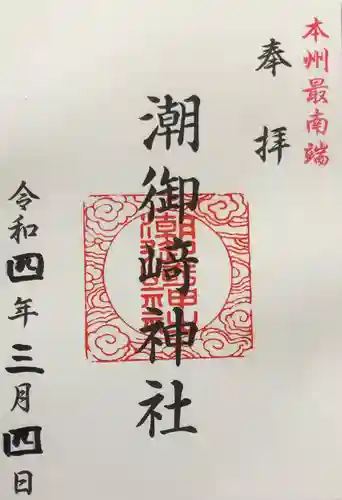 本州最南端
奉拝
潮御崎神社
令和四年三月四日